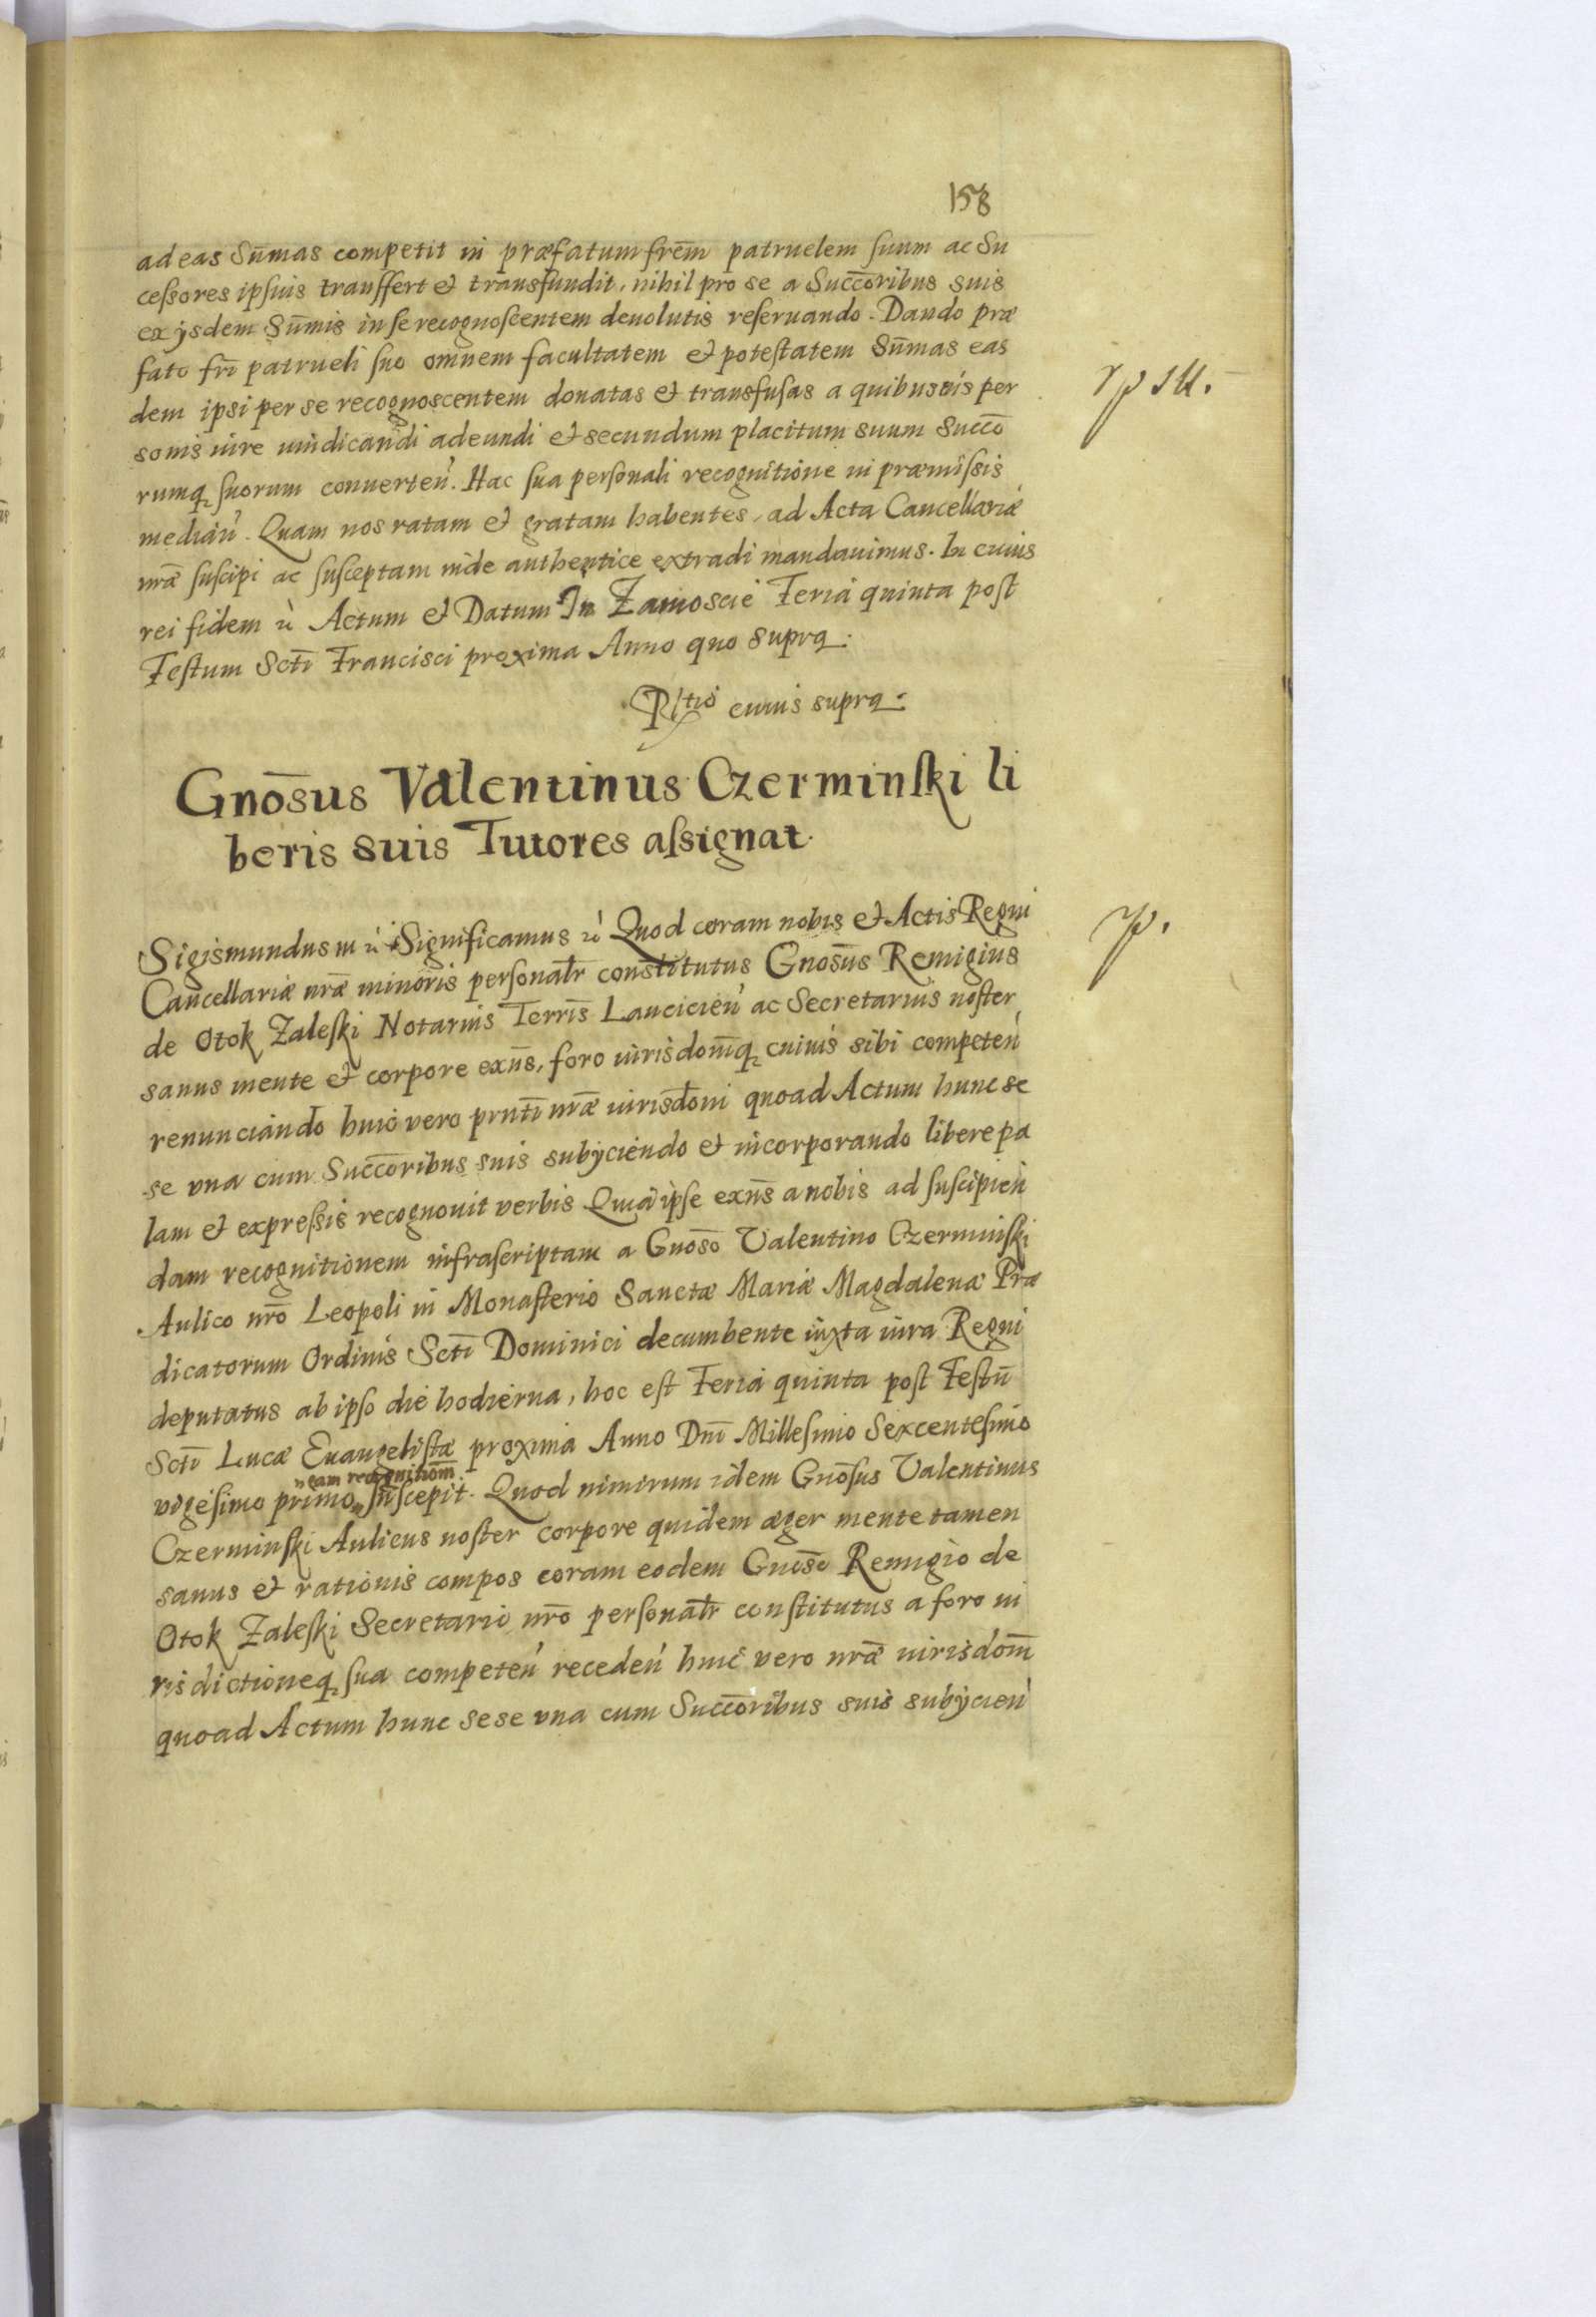 158
ad eas Sūmas competit in præfatum frēm patruelem suum ac Su
cessores ipsius transffert et transfundit, nihil pro se a Succōribus suis
ex ijsdem Sūmis in se recognoscentem devolutis reservando. Dando præ
fato frī patrueli suo omnem facultatem et potestatem Sūmas eas
dem ipsi per se recognoscentem donatas et transfusas a quibusvis per
sonis iure vindicandi adeundi et secundum placitum suum Succō
rumq suorum converteń. Hac sua personali recognitione in præmissis
mediań. Quam nos ratam et gratam habentes, ad Acta Cancellariæ
nrǣ suscipi ac susceptam inde authentice extradi mandavimus. In cuius
rei fidem ꝛ̀ Actum et Datum In Zamoscie Feria quinta post
Festum Sctī Francisci proxima Anno quo supra.
R/tio cuius supra.
Gnōsus Valentinus Czerminski li
beris suis Tutores assignat.
Sigismundus III ꝛ̀ Significamus ꝛ̀ Quod coram nobis et Actis Regni
Cancellariæ nrǣ minoris personalr constitutus Gnosūs Remigius
de Otok Zaleski Notarius Terrīs Lancicień ac Secretarius noster
sanus mente et corpore exn̄s, foro iurisdom̄q cuius sibi competeń
renunciando huic vero prntī nrǣ iurisdōni quoad Actum hunc se
se una cum Succōribus suis subijciendo et incorporando libere pa
lam et expressis recognovit verbis Quia ipse exn̄s a nobis ad suscipień
dam recognitionem infrascriptam a Gnōso Valentino Czerminski
Aulico nrō Leopoli in Monasterio Sanctæ Mariæ Magdalenæ Præ
dicatorum Ordinis Sctī Dominici decumbente iuxta iura Regni
deputatus ab ipso die hodierna, hoc est Feria quinta post Festū
Sctī Lucæ Evangelistæ proxima Anno Dnī Millesimo Sexcentesimo
eam recognitiōm
vigesimo primo suscepit. Quod nimirum idem Gnōsus Valentinus
Czerminski Aulicus noster corpore quidem æger mente tamen
sanus et rationis compos coram eodem Gnōso Remigio de
Otok Zaleski Secretario nrō personalr constitutus a foro iu
risdictioneq sua competeń recedeń huic vero nrǣ iurisdom̄
quoad Actum hunc sese una cum Succōribus suis subijcień